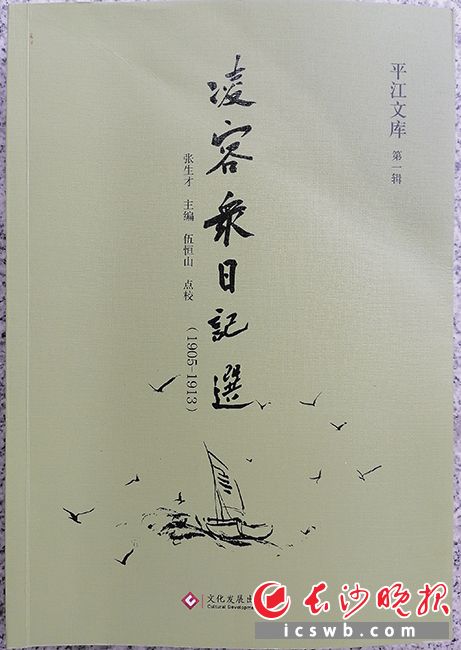 平江文库 第一辑
凌容众日記選
张生才 主编 伍恒山 点校 (1905-1913)
文化发展出
Cultural Development
长沙晚报
icswb.com